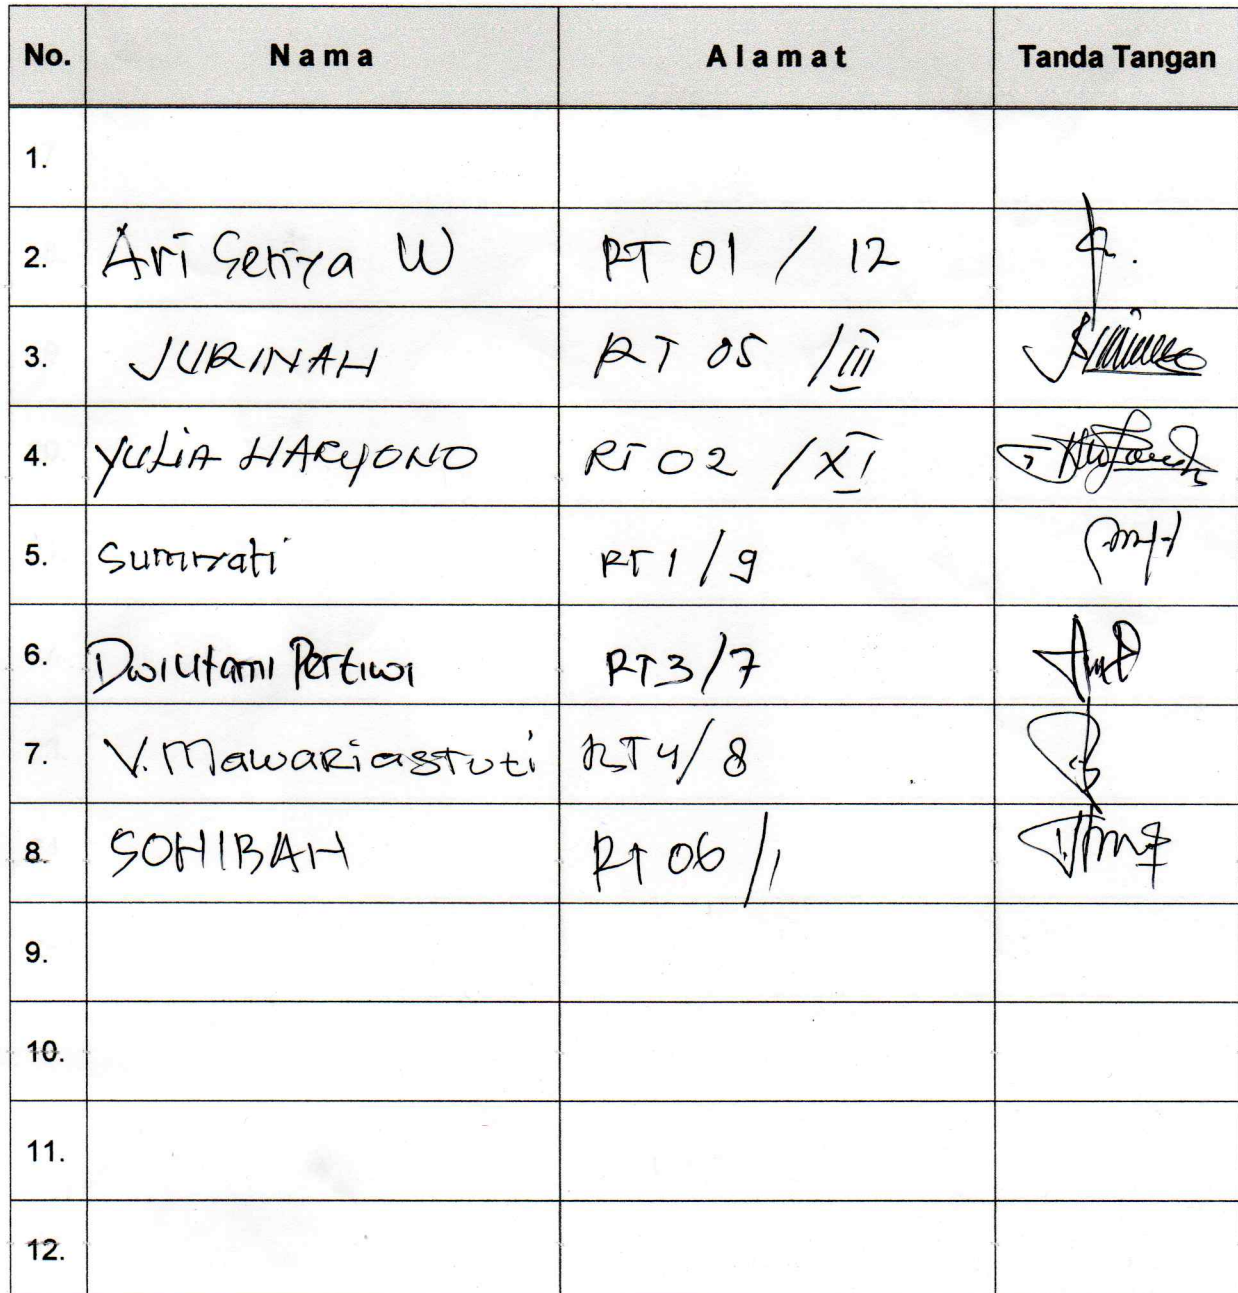 No. Nama Alamat Tanda Tangan
1.
2. Ari Setiya W RT 01 / 12
3. JURINAH RT 05 / III
4. YULIA HARYONO RT 02 / XI
5. Sumiyati RT 1 / 9
6. Dwi Utami Pertiwi RT3/7
7. V. Mawariastuti RT4/8
8. SOHIBAH RT 06 / 1
9.
10.
11.
12.